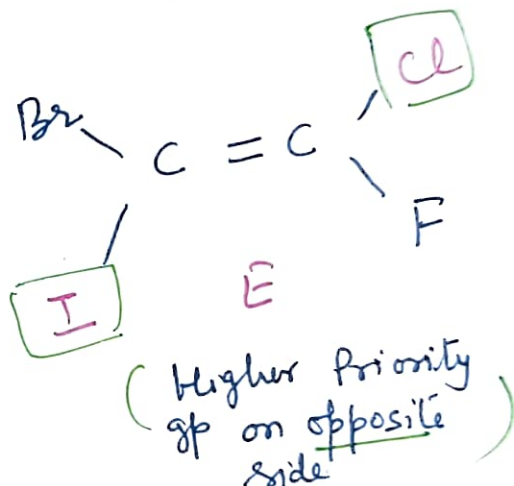 Cl
Br C = C
F
I
E
(Higher Priority
gp on opposite
side)